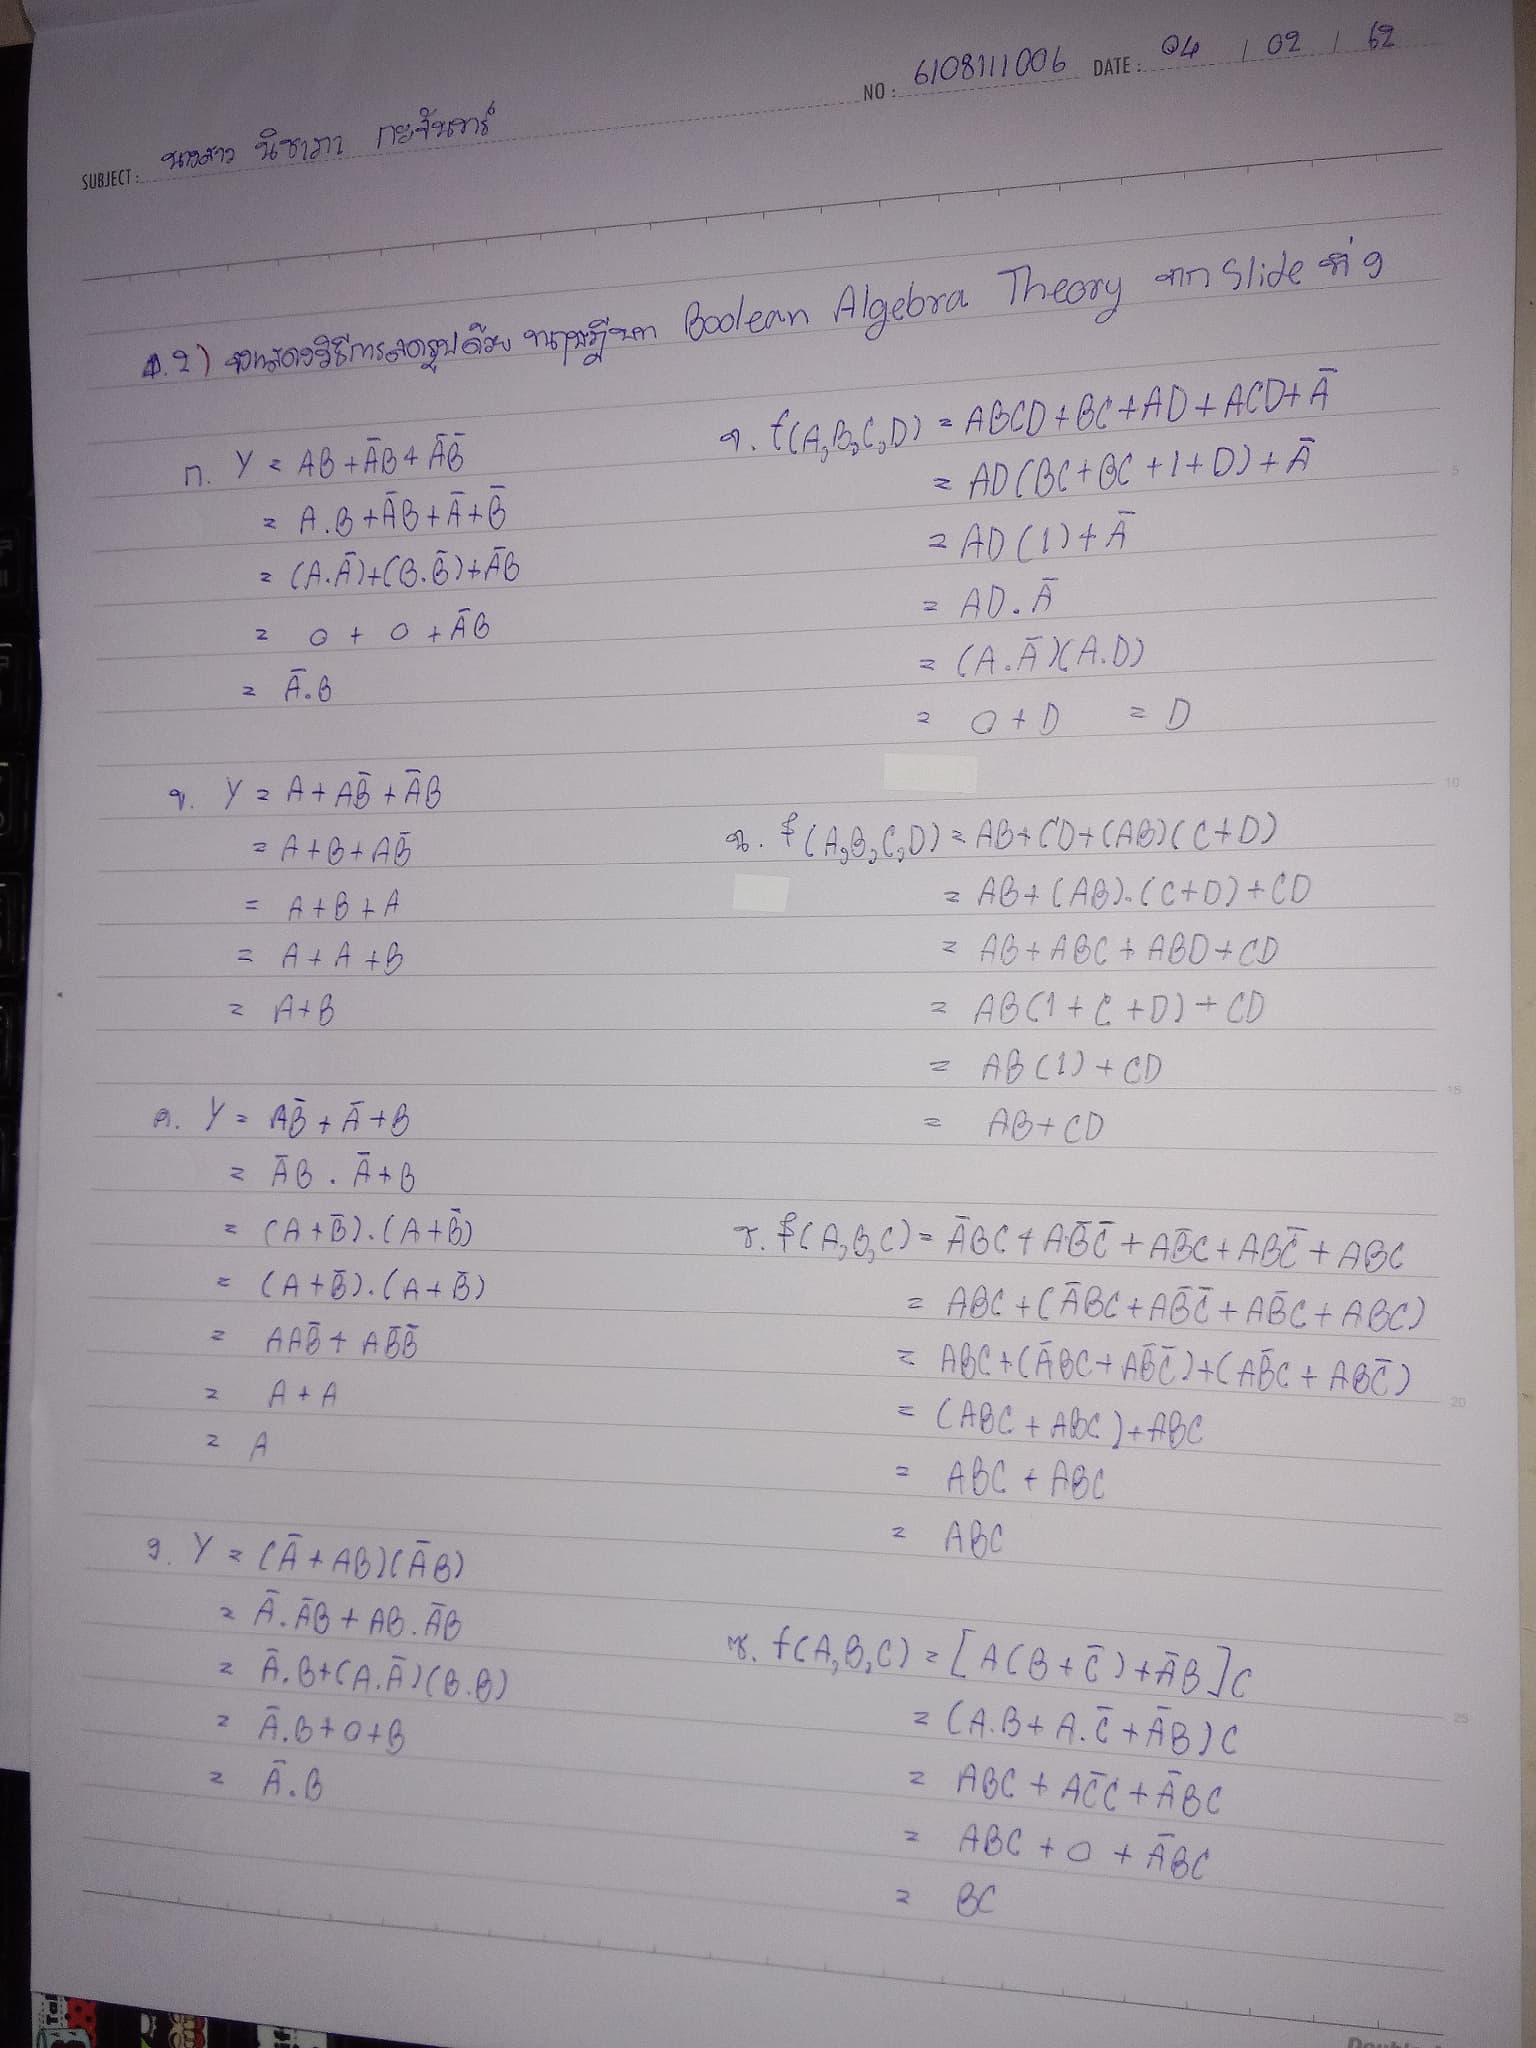 NO : 6108111006 DATE : 04 / 02 / 62
SUBJECT : นางสาว นิชาภา กะจันทร์
1.2) จงแสดงวิธีการลดรูปด้วย Boolean Algebra Theory จาก Slide ที่ 9
ก. Y = AB + A̅B + A̅B̅
= A.B + A̅B + A̅ + B̅
= (A.A̅) + (B.B̅) + A̅B
= 0 + 0 + A̅B
= A̅.B
ข. Y = A + AB̅ + A̅B
= A + B + AB̅
= A + B + A
= A + A + B
= A + B
ค. Y = AB̅ + A̅ + B
= A̅B . A̅ + B
= (A + B̅).(A + B̅)
= (A + B̅).(A + B̅)
= AAB̅ + AB̅B̅
= A + A
= A
ง. Y = (A̅ + AB)(A̅B)
= A̅.A̅B + AB.A̅B
= A̅.B + (A.A̅)(B.B)
= A̅.B + 0 + B
= A̅.B
จ. f(A,B,C,D) = ABCD + BC + AD + ACD + A̅
= AD(BC + BC + 1 + D) + A̅
= AD(1) + A̅
= AD . A̅
= (A.A̅)(A.D)
= 0 + D = D
ฉ. f(A,B,C,D) = AB + CD + (AB)(C + D)
= AB + (AB).(C + D) + CD
= AB + ABC + ABD + CD
= AB(1 + C + D) + CD
= AB(1) + CD
= AB + CD
ช. f(A,B,C) = A̅BC + AB̅C̅ + AB̅C + ABC̅ + ABC
= ABC + (A̅BC + AB̅C̅ + AB̅C + ABC)
= ABC + (A̅BC + AB̅C̅) + (AB̅C + ABC̅)
= (ABC + ABC) + ABC
= ABC + ABC
= ABC
ซ. f(A,B,C) = [A(B + C̅) + A̅B]C
= (A.B + A.C̅ + A̅B)C
= ABC + AC̅C + A̅BC
= ABC + 0 + A̅BC
= BC
5
10
15
20
25